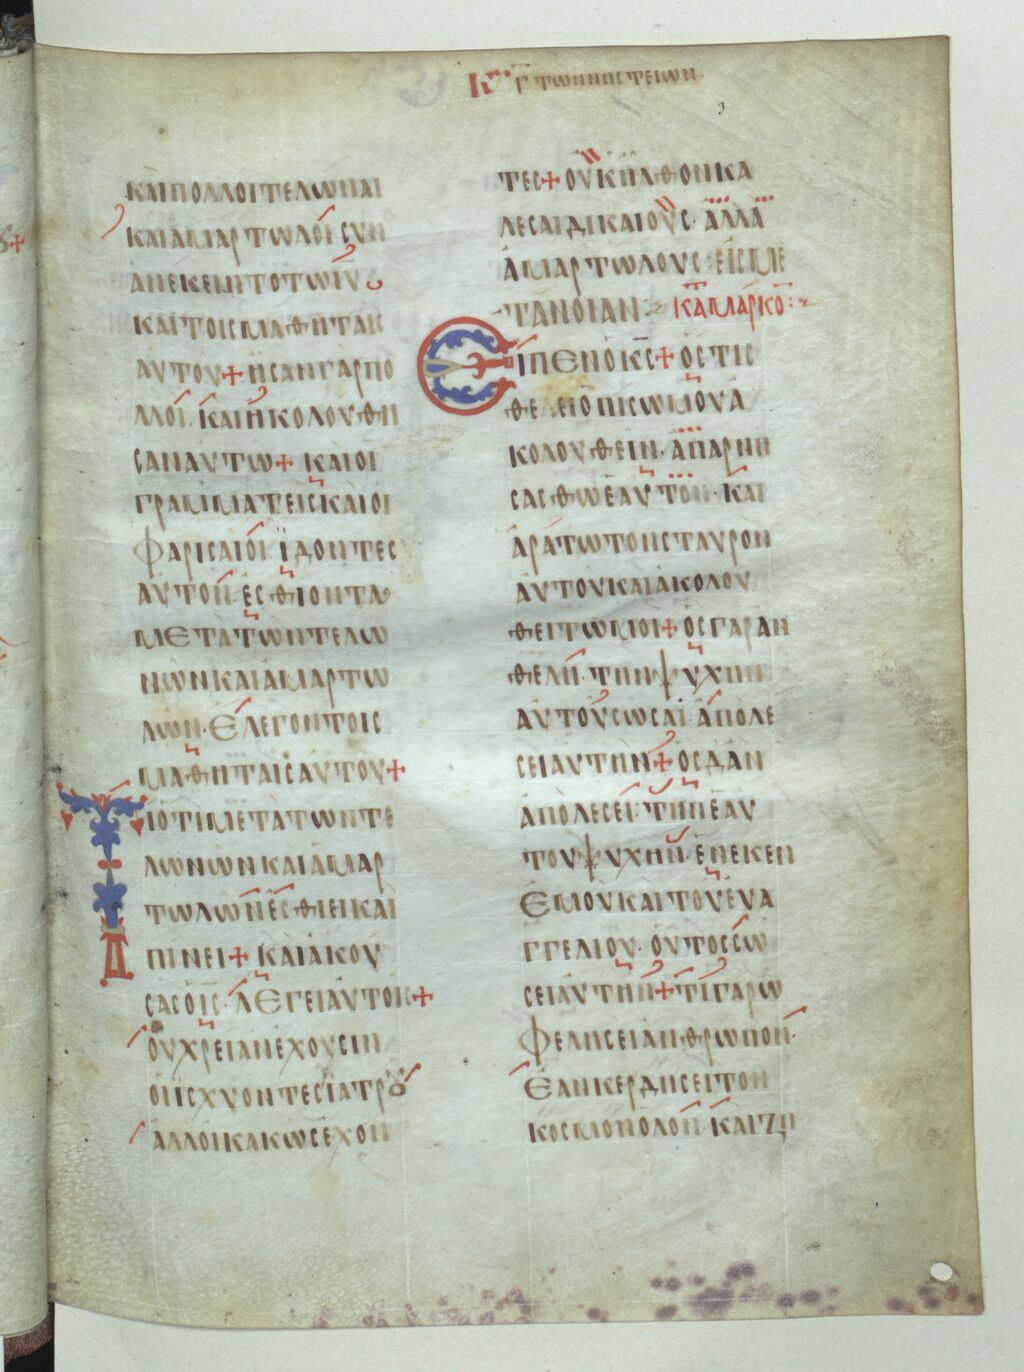 Κυ Γ ΤΩΝ ΝΗΣΤΕΙΩΝ
ΚΑΙ ΠΟΛΛΟΙ ΤΕΛΩΝΑΙ
ΚΑΙ ΑΜΑΡΤΩΛΟΙ ΣΥΝ
ΑΝΕΚΕΙΝΤΟ ΤΩ ΙΥ
ΚΑΙ ΤΟΙΣ ΜΑΘΗΤΑΙΣ
ΑΥΤΟΥ + ΗΣΑΝ ΓΑΡ ΠΟ
ΛΛΟΙ. ΚΑΙ ΗΚΟΛΟΥΘΗ
ΣΑΝ ΑΥΤΩ + ΚΑΙ ΟΙ
ΓΡΑΜΜΑΤΕΙΣ ΚΑΙ ΟΙ
ΦΑΡΙΣΑΙΟΙ. ΪΔΟΝΤΕΣ
ΑΥΤΟΝ. ΕΣΘΙΟΝΤΑ
ΜΕΤΑ ΤΩΝ ΤΕΛΩ
ΝΩΝ ΚΑΙ ΑΜΑΡΤΩ
ΛΩΝ. ΕΛΕΓΟΝ ΤΟΙΣ
ΜΑΘΗΤΑΙΣ ΑΥΤΟΥ +
ΤΙ ΟΤΙ ΜΕΤΑ ΤΩΝ ΤΕ
ΛΩΝΩΝ ΚΑΙ ΑΜΑΡ
ΤΩΛΩΝ ΕΣΘΙΕΙ ΚΑΙ
ΠΙΝΕΙ + ΚΑΙ ΑΚΟΥ
ΣΑΣ Ο ΙΣ. ΛΕΓΕΙ ΑΥΤΟΙΣ +
ΟΥ ΧΡΕΙΑΝ ΕΧΟΥΣΙΝ
ΟΙ ΙΣΧΥΟΝΤΕΣ ΙΑΤΡΟΥ
ΑΛΛ ΟΙ ΚΑΚΩΣ ΕΧΟΝ
ΤΕΣ + ΟΥΚ ΗΛΘΟΝ ΚΑ
ΛΕΣΑΙ ΔΙΚΑΙΟΥΣ. ΑΛΛΑ
ΑΜΑΡΤΩΛΟΥΣ ΕΙΣ ΜΕ
ΤΑΝΟΙΑΝ: ΚΑ ΜΑΡΚΟ:
ΕΙΠΕΝ Ο ΚΣ + ΟΣΤΙΣ
ΘΕΛΕΙ ΟΠΙΣΩ ΜΟΥ Α
ΚΟΛΟΥΘΕΙΝ. ΑΠΑΡΝΗ
ΣΑΣΘΩ ΕΑΥΤΟΝ. ΚΑΙ
ΑΡΑΤΩ ΤΟΝ ΣΤΑΥΡΟΝ
ΑΥΤΟΥ ΚΑΙ ΑΚΟΛΟΥ
ΘΕΙΤΩ ΜΟΙ + ΟΣ ΓΑΡ ΑΝ
ΘΕΛΗ. ΤΗΝ ΨΥΧΗΝ
ΑΥΤΟΥ ΣΩΣΑΙ. ΑΠΟΛΕ
ΣΕΙ ΑΥΤΗΝ + ΟΣ Δ ΑΝ
ΑΠΟΛΕΣΕΙ. ΤΗΝ ΕΑΥ
ΤΟΥ ΨΥΧΗΝ. ΕΝΕΚΕΝ
ΕΜΟΥ ΚΑΙ ΤΟΥ ΕΥΑ
ΓΓΕΛΙΟΥ. ΟΥΤΟΣ ΣΩ
ΣΕΙ ΑΥΤΗΝ + ΤΙ ΓΑΡ Ω
ΦΕΛΗΣΕΙ ΑΝΘΡΩΠΟΝ.
ΕΑΝ ΚΕΡΔΗΣΕΙ ΤΟΝ
ΚΟΣΜΟΝ ΟΛΟΝ. ΚΑΙ ΖΗ